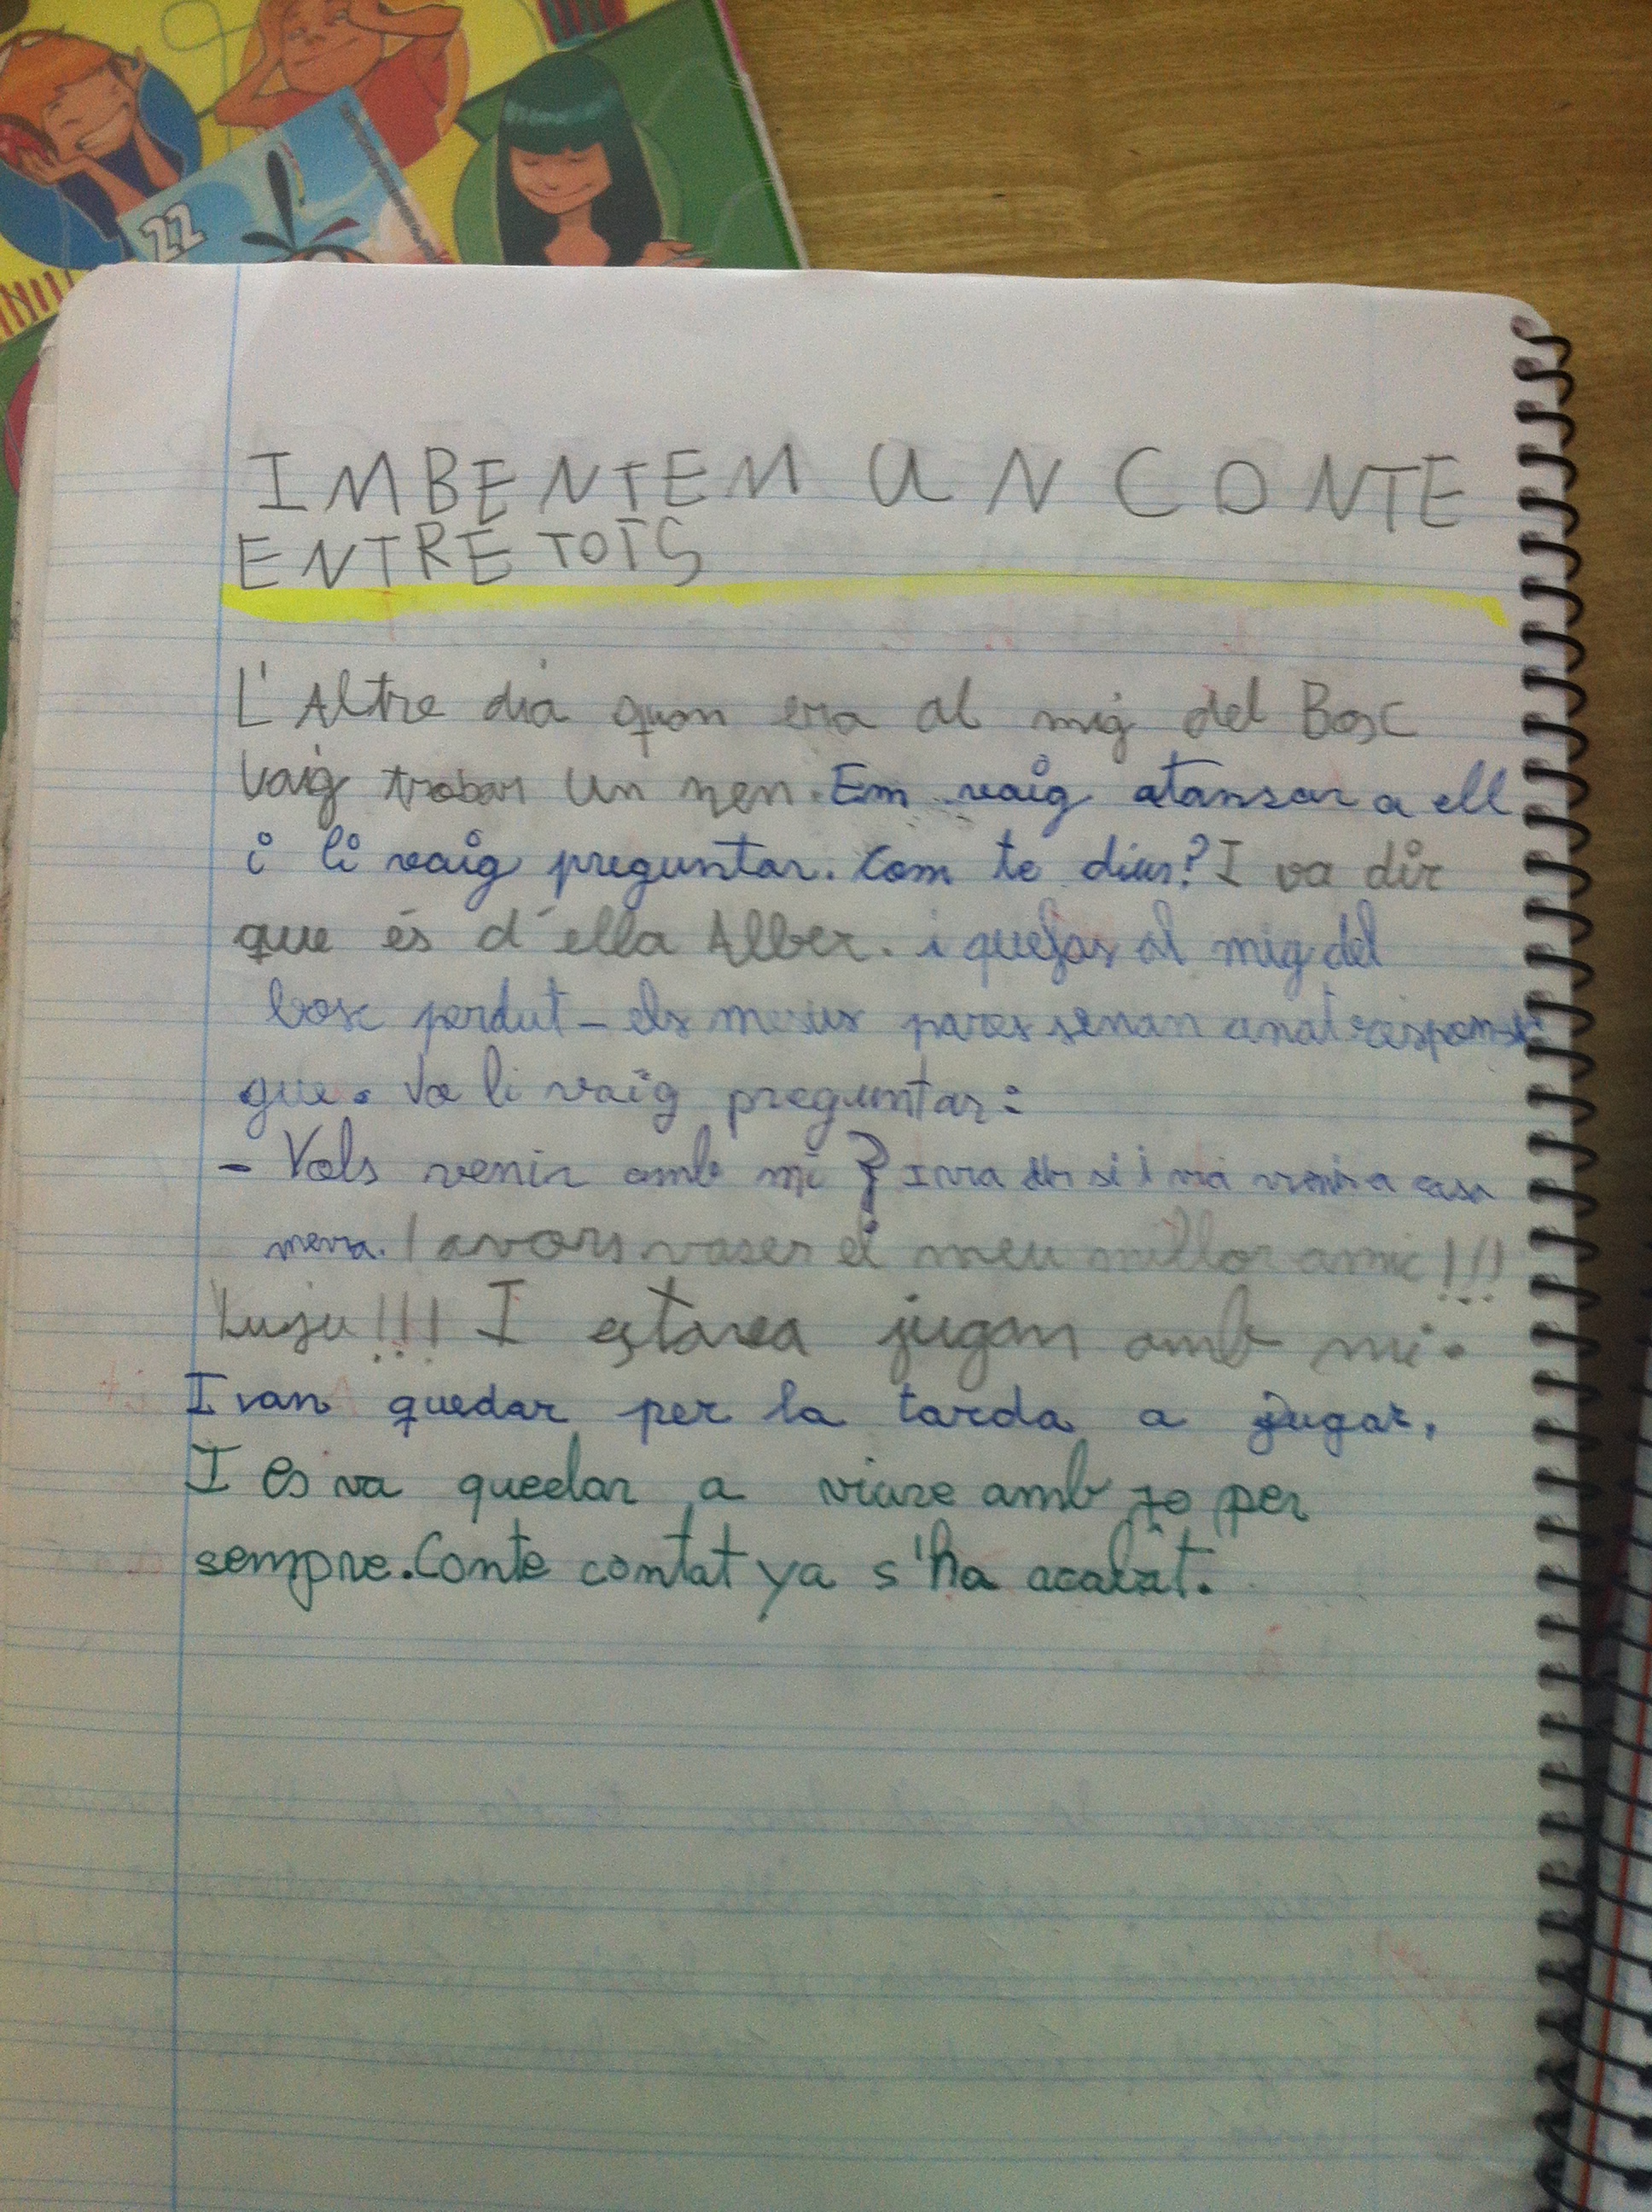 22
IMBENTEM UN CONTE
ENTRE TOTS
L'Altre dia quan era al mig del Bosc
Vaig trobar Un nen. Em vaig atansar a ell
i li vaig preguntar. Com te dius? I va dir
que és d'ella Alber. i quefas al mig del
bosc perdut - els meus pares senan anat respons
que. Va li vaig preguntar:
- Vols venir amb mi? I va dir si i va venir a casa
meva. lavors vaser el meu millor amic!!!
Yuju!!! I estarea jugam amb mi.
I van quedar per la tarda a jugar,
I es va quedar a viure amb jo per
sempre. Conte contat ya s'ha acabat.